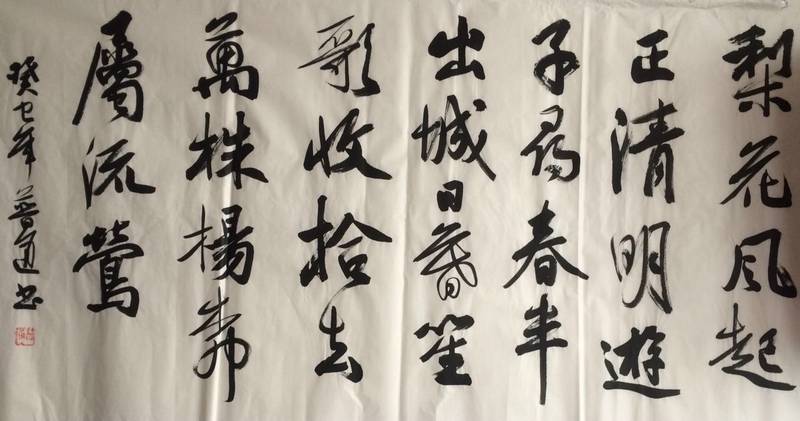 梨花风起
正清明遊
子尋春半
出城日暮笙
歌收拾去
萬株楊柳
屬流鶯
癸巳年普道书